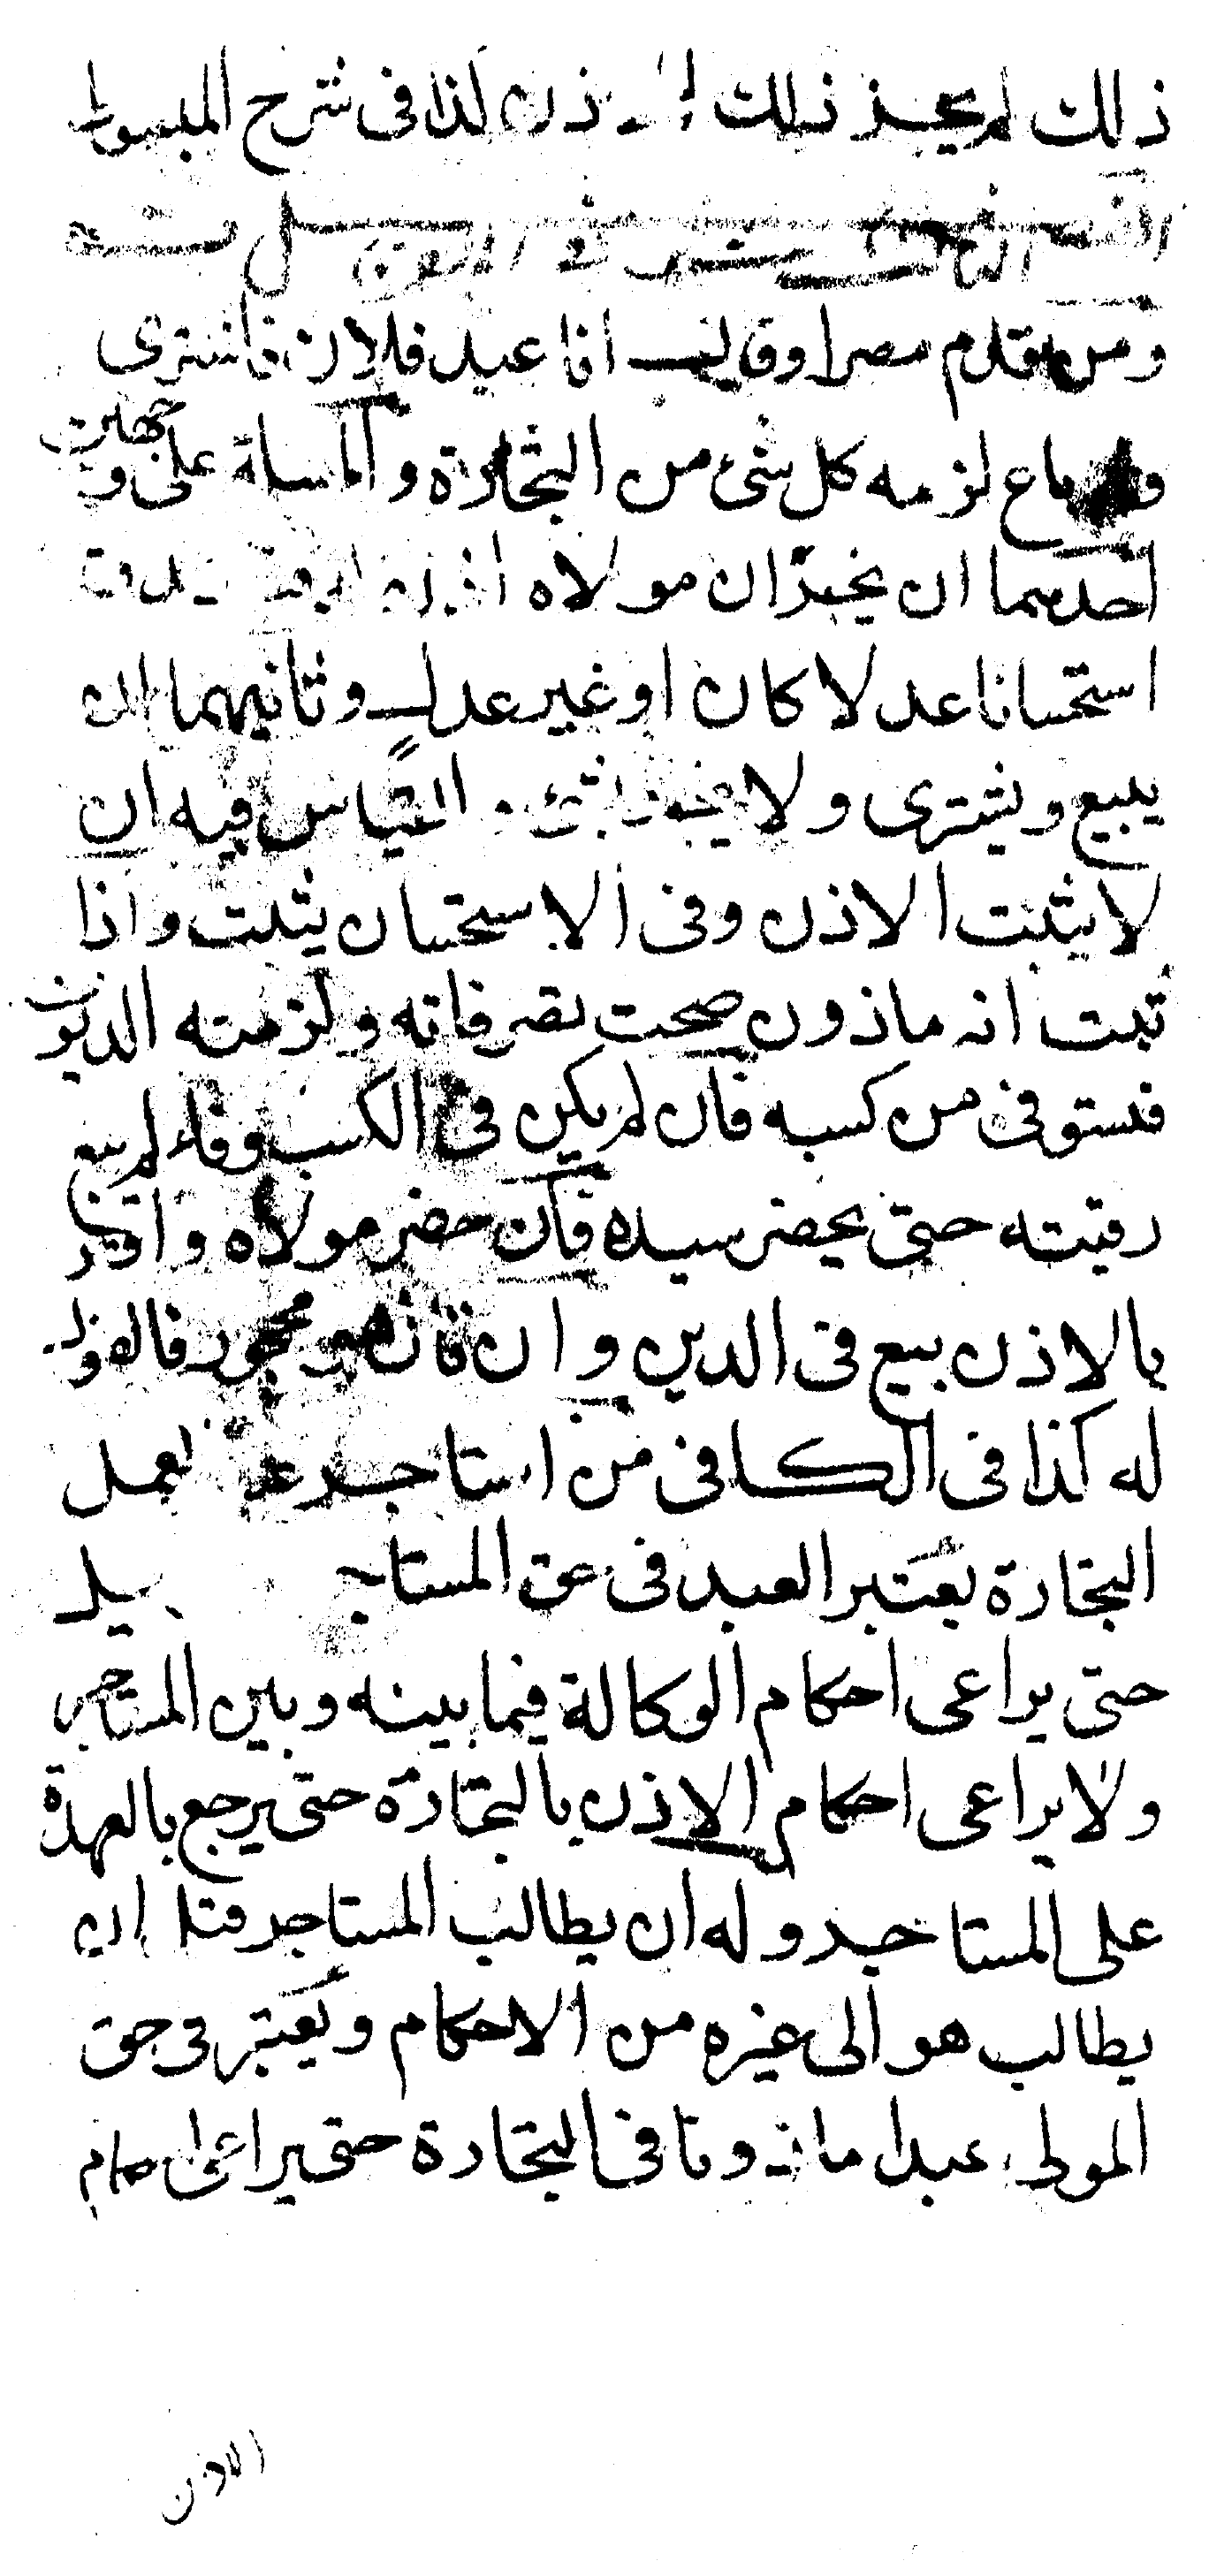 ذلك لم يجز ذلك الاذن كذا فى شرح المبسوط
فى
ومن قدم مصرا وقال انا عبد فلان فاشترى
وباع لزمه كل شئ من التجارة والمسالة على وجهين
احدهما ان يخبر ان مولاه اذن له فيصدق
استحسانا عدلا كان او غير عدل وثانيهما ان
يبيع ويشترى ولا يخبر بشئ القياس فيه ان
لا يثبت الاذن وفى الاستحسان يثبت واذا
ثبت انه ماذون صحت تصرفاته ولزمته الديون
فتستوفى من كسبه فان لم يكن فى الكسب وفاء لم يبع
رقبته حتى يحضر سيده فان حضر مولاه واقر
بالاذن بيع فى الدين وان قال هو محجور فالقول
له كذا فى الكافى من استاجر عبدا لعمل
التجارة يعتبر العبد فى حق المستاجر
حتى يراعى احكام الوكالة فيما بينه وبين المستاجر
ولا يراعى احكام الاذن بالتجارة حتى يرجع بالعهدة
على المستاجر وله ان يطالب المستاجر قبل ان
يطالب هو الى غيره من الاحكام ويعتبر فى حق
المولى عبدا ماذونا فى التجارة حتى يراعى احكام
الاذن